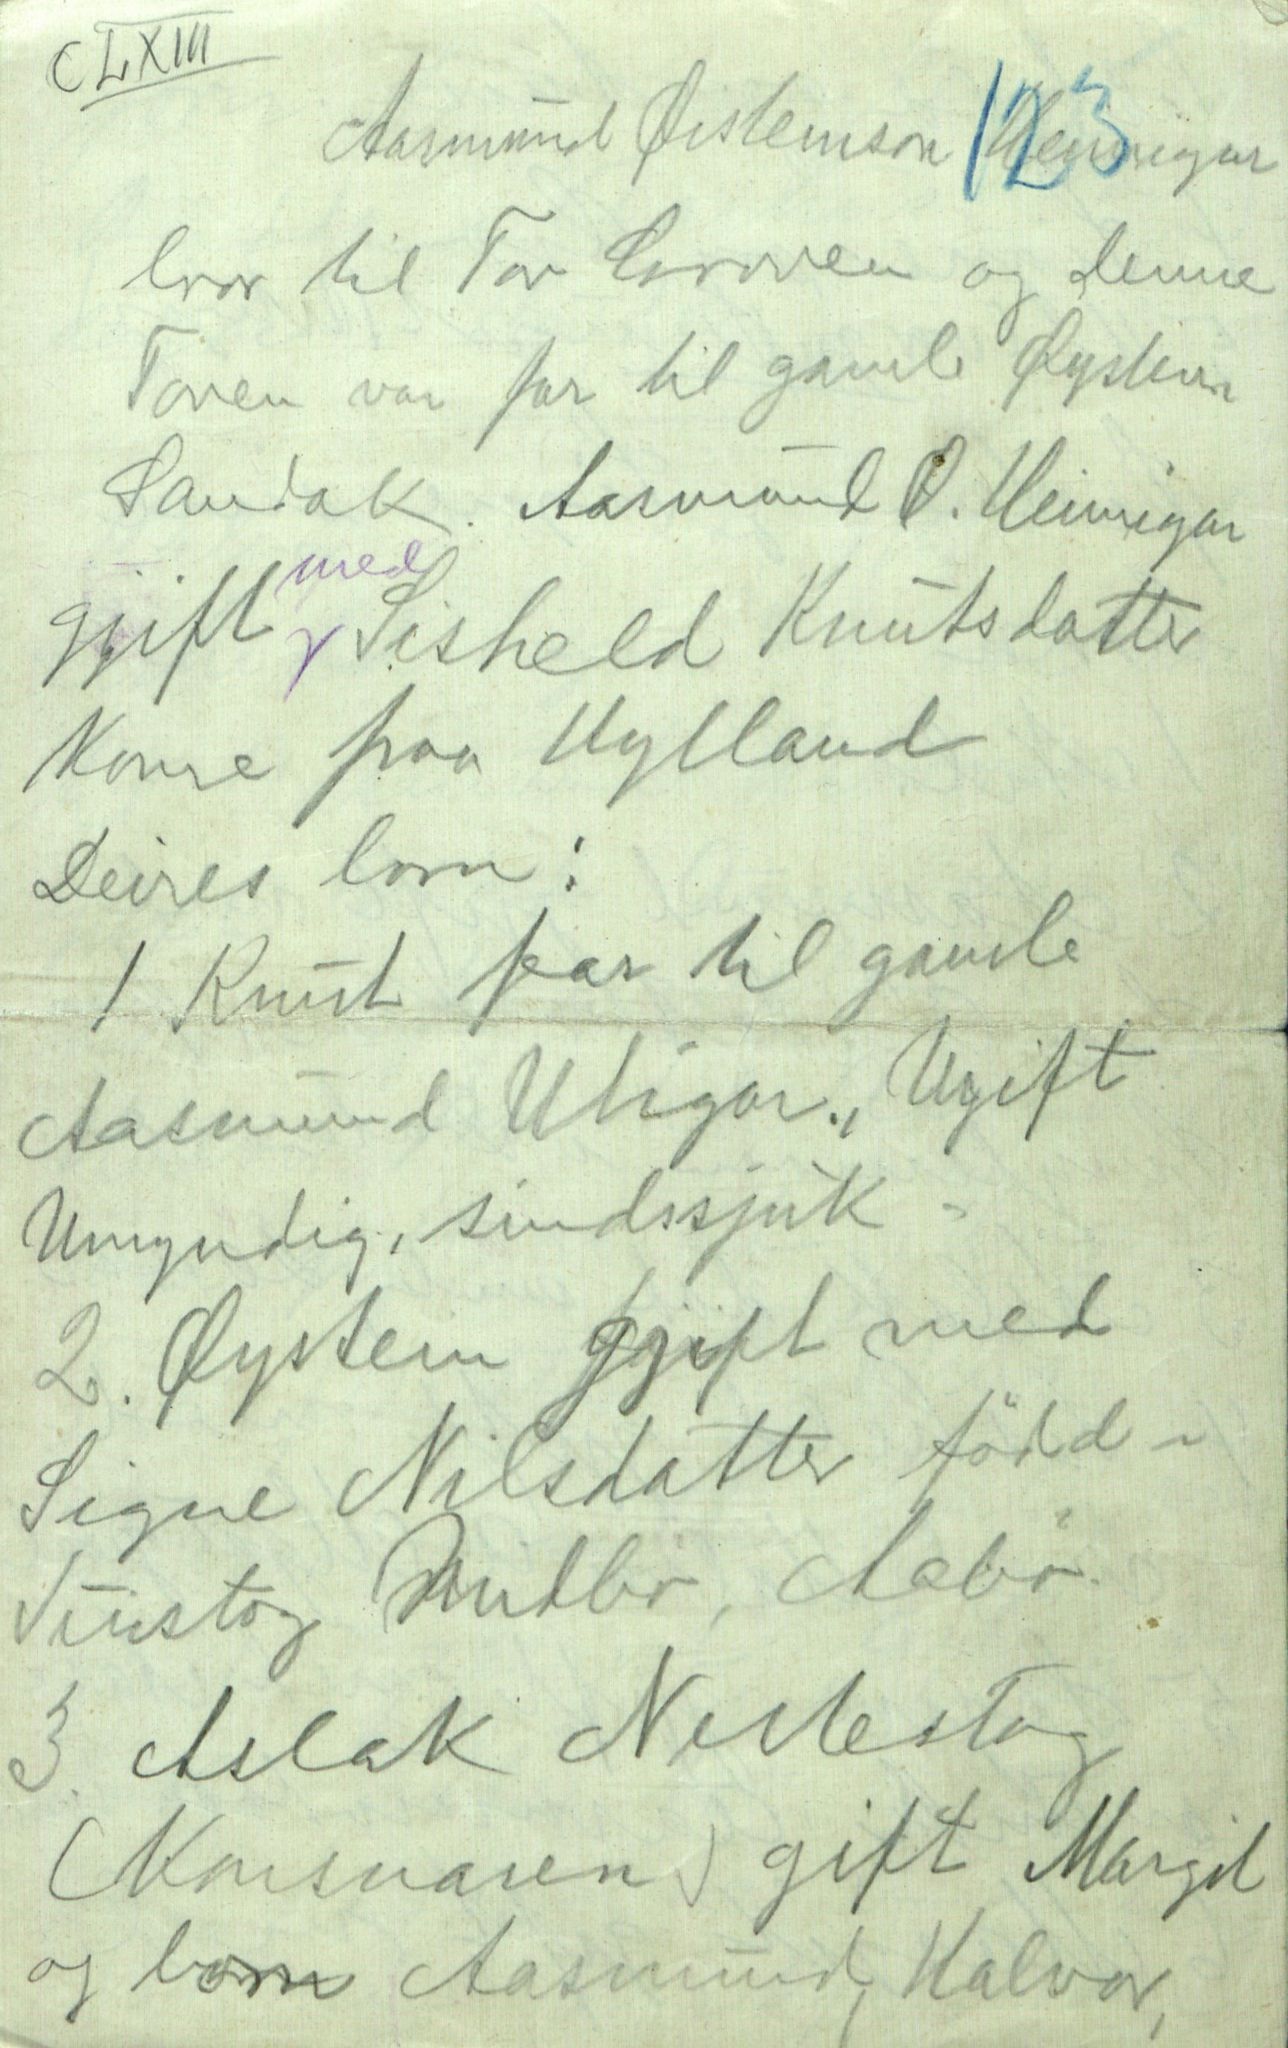 CLXIII
123
Aasmund Øistenson Heimigar
bror til Tor Loroven og denne
Toven var far til gamle Øystein
Sandok. Aasmund Ø. Heimigar
gjift med Sisheld Knutsdatter
Kome fraa Hylland
Deires born:
1 Knut far til gamle
Aasmund Utigar., Ugift
Umyndig, sindssjuk -
2. Øystein gjift med
Signe Nilsdatter född -
Midbö, Aabö.
3. Aslak Nistestog
gift Margit
og born Aasmund, Halvor,